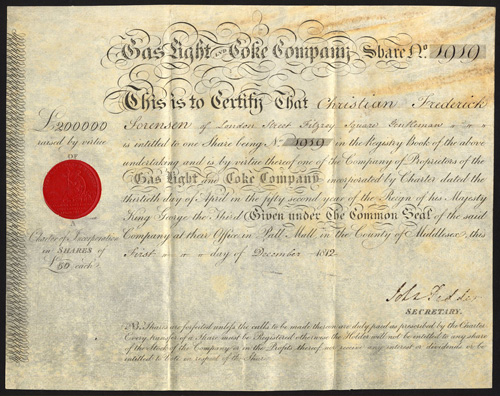 Gas Light and Coke Company Share No. 1919
This is to Certify That Christian Frederick
Sorensen of London Street Fitzroy Square Gentleman
is intitled to one Share being No. 1919 in the Registry Book of the above
undertaking and is by virtue thereof one of the Company of Proprietors of the
Gas Light and Coke Company incorporated by Charter dated the
thirtieth day of April in the fifty second year of the Reign of his Majesty
King George the Third Given under the Common Seal of the said
Company at their Office in Pall Mall in the County of Middlesex this
First day of December 1812
£200000
raised by virtue
OF
A
Charter of Incorporation
in SHARES of
£50 each
SECRETARY.
NB. Shares are forfeited unless the calls to be made thereon are duly paid as prescribed by the Charter.
Every transfer of a Share must be Registered otherwise the Holder will not be entitled to any share
of the Stock of the Company or in the Profits thereof nor receive any interest or dividends or be
intitled to Vote in respect of the Share.